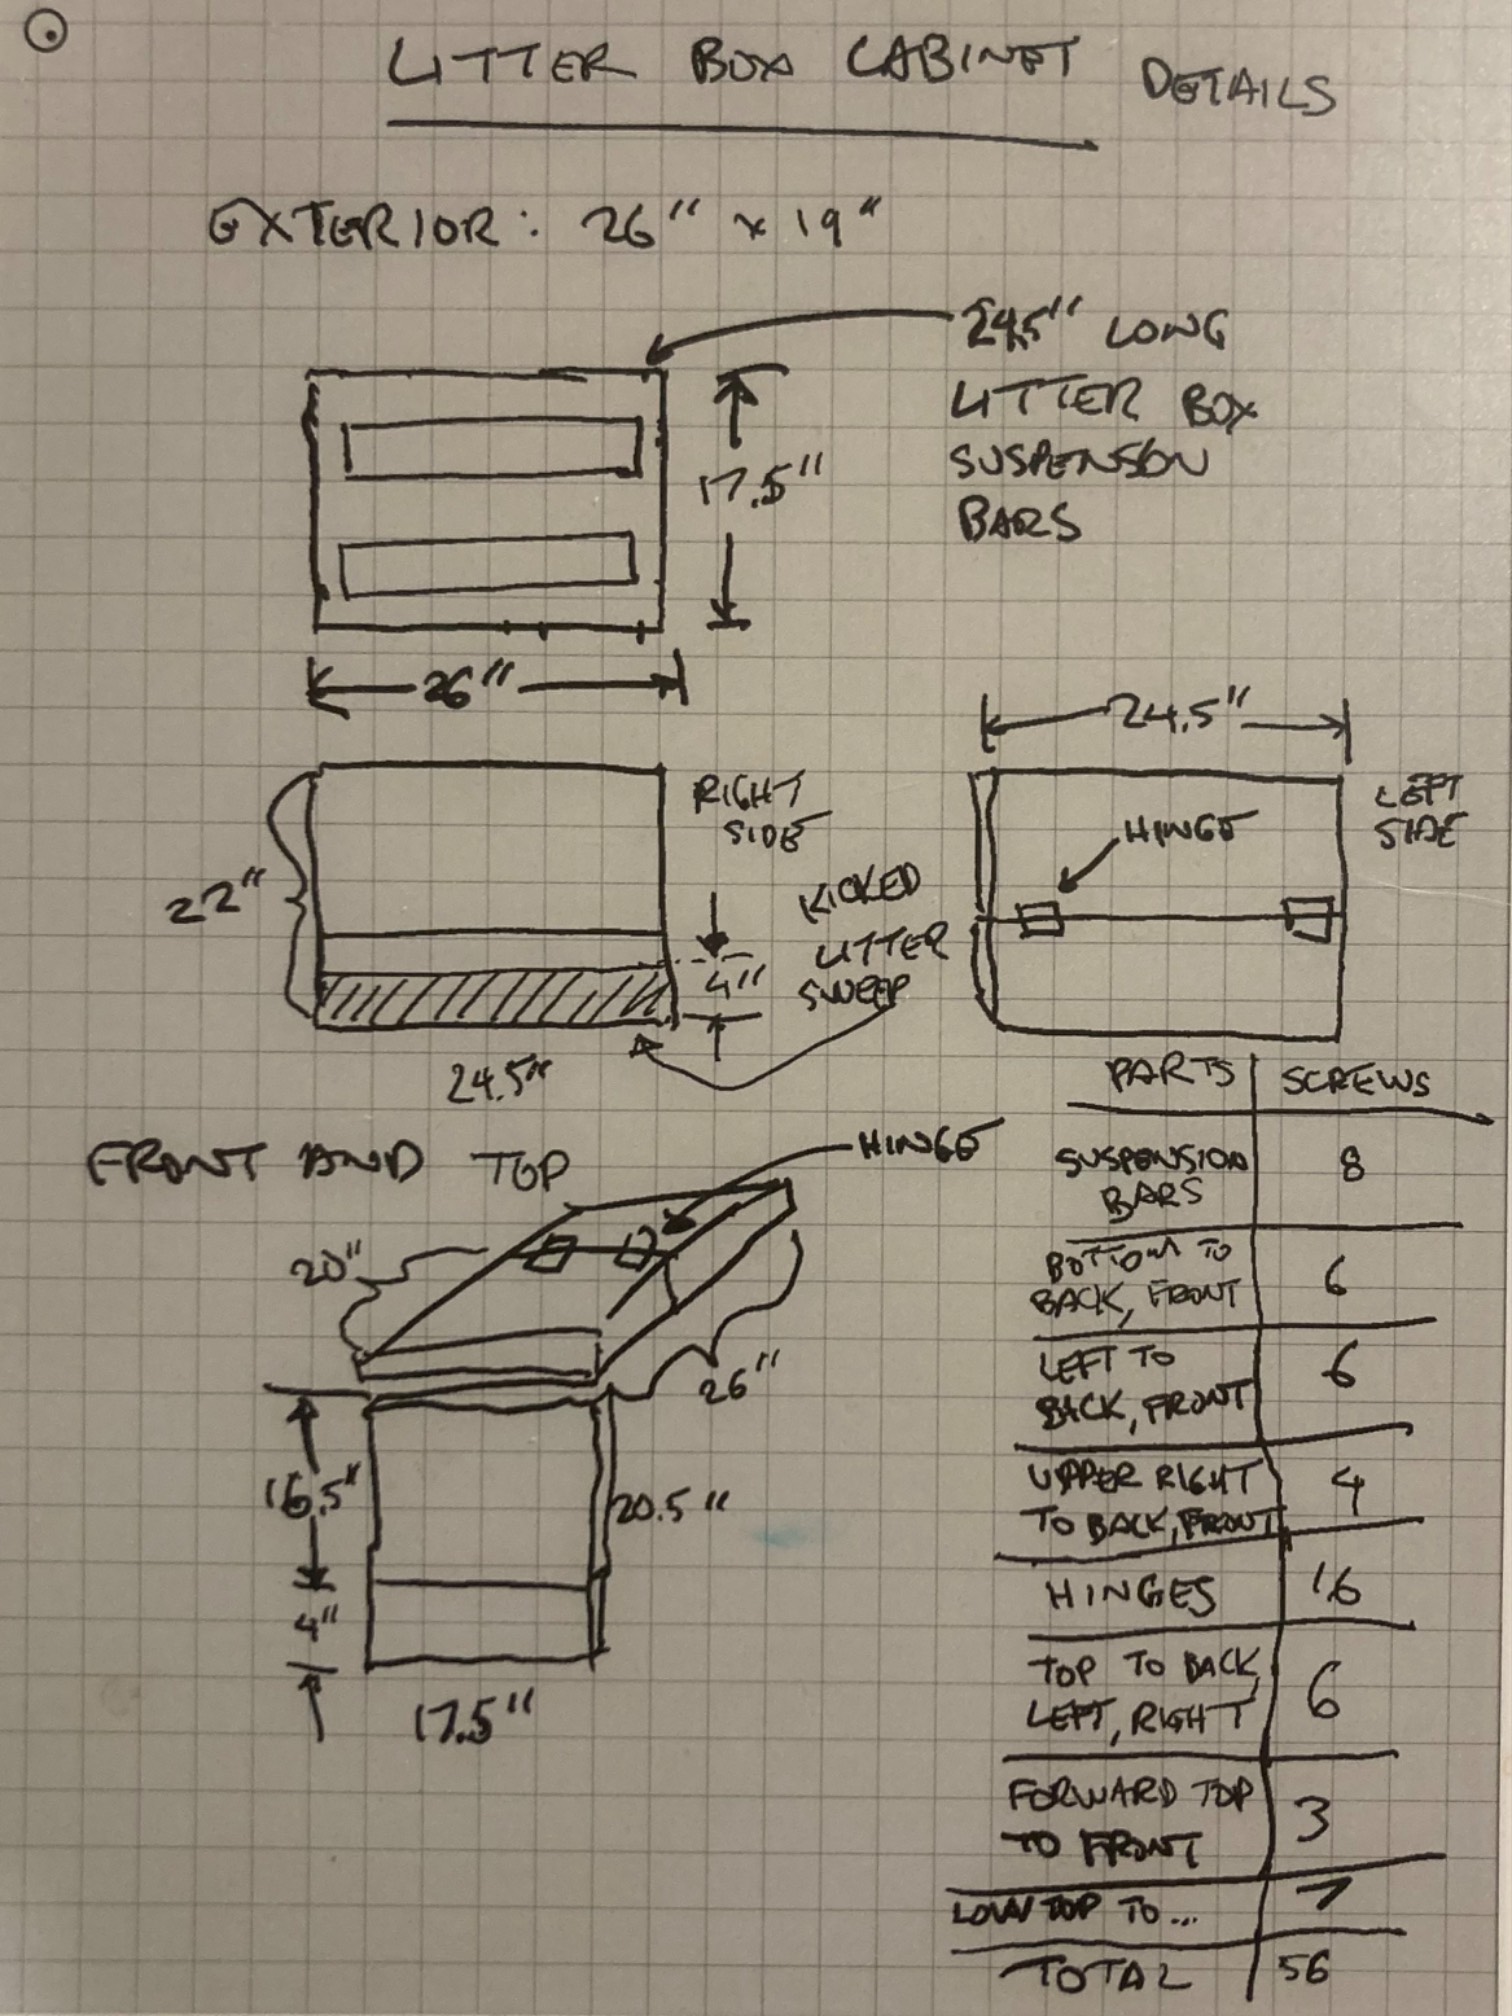 LITTER BOX CABINET DETAILS
EXTERIOR: 26" x 19"
24.5" LONG
LITTER BOX
SUSPENSION
BARS
17.5"
26"
24.5"
RIGHT
SIDE
LEFT
SIDE
HINGE
22"
KICKED
LITTER
SWEEP
4"
24.5"
FRONT AND TOP
HINGE
20"
26"
16.5"
20.5"
4"
17.5"
PARTS SCREWS
SUSPENSION
BARS 8
BOTTOM TO
BACK, FRONT 6
LEFT TO
BACK, FRONT 6
UPPER RIGHT
TO BACK, FRONT 4
HINGES 16
TOP TO BACK,
LEFT, RIGHT 6
FORWARD TOP
TO FRONT 3
LOW TOP TO... 7
TOTAL 56